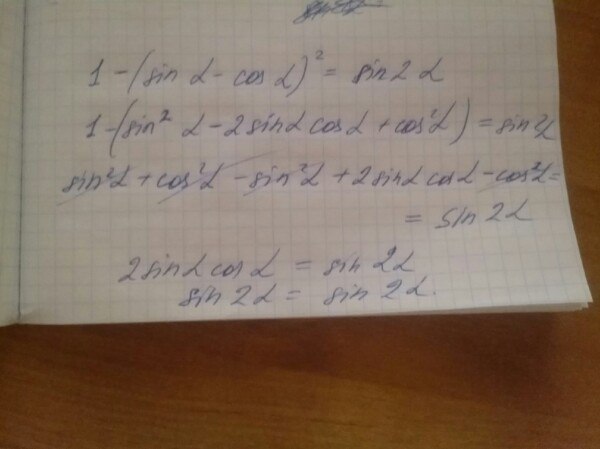 1 - (sin α - cos α)² = sin 2 α
1 - (sin² α - 2 sin α cos α + cos² α) = sin 2α
sin²α + cos²α - sin²α + 2 sin α cos α - cos²α =
= sin 2α
2 sin α cos α = sin 2α
sin 2α = sin 2α.